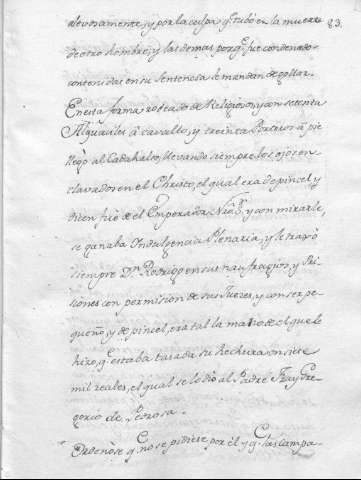 83.
alevosamente, y por la culpa q͞ tubo en la muerte
de otro hombre, y las demas porq͞ fue condenado
contenidas en su Sentencia le mandan degollar.
En esta forma rodeado de Religiosos, y con setenta
Alguaciles à cavallo, y treinta Porteros à pie
llegò al Cadahalso, llevando siempre los ojos en
clavados en el Christo, el qual era de pincel, y
dicen fuè de el Emperador Nr͞o S.r, y con mirarle,
se ganaba Indulgencia Plenaria, y le traxo
siempre Dn. Rodrigo en sus naufragios, y Pri
siones con permision de sus Jueces, y con ser pe
queño, y de pincel, era tal la mano de el que le
hizo, q͞ estaba tasada su hechura en siete
mil reales, el qual se lo diò al Padre Fray Gre
gorio de Pedrosa.
Ordenòse q͞ no se pidiese por èl, y q͞ las campa